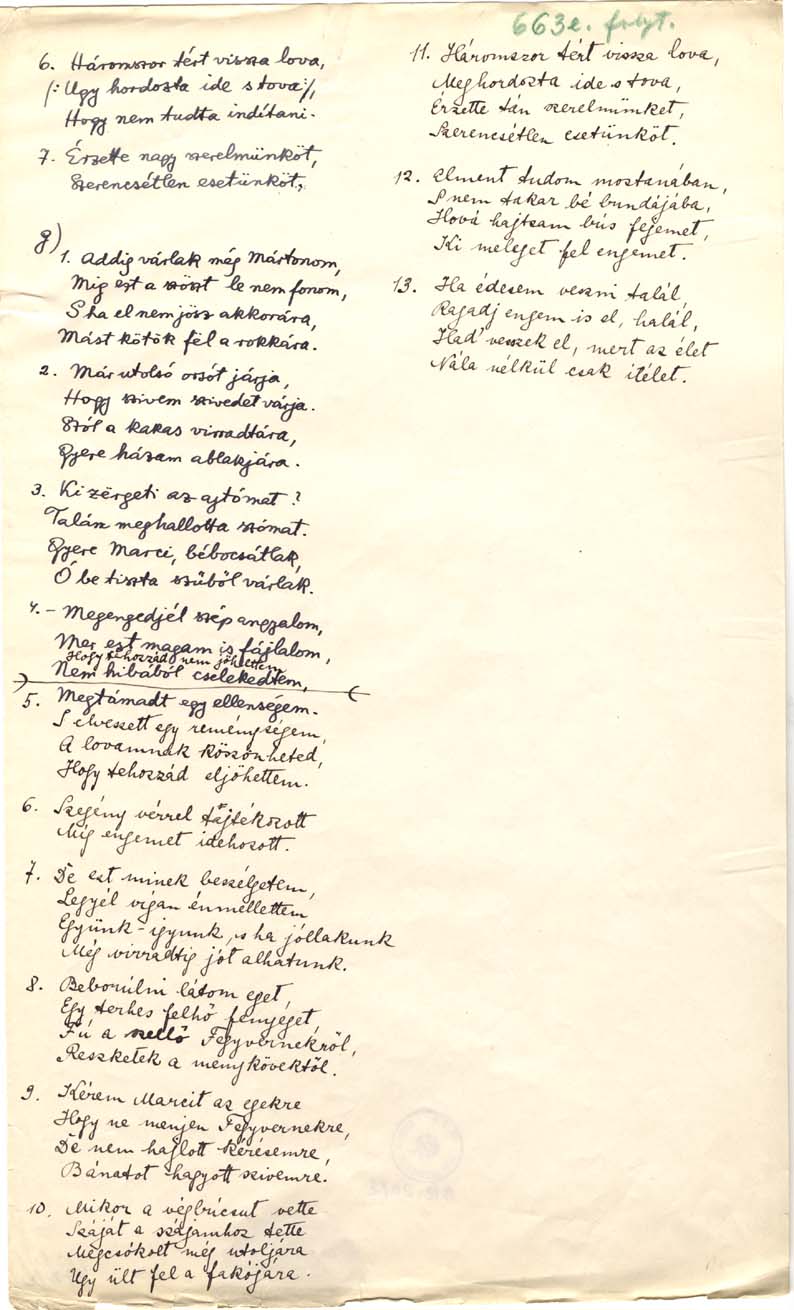 663e. folyt.
6. Háromszor tért vissza lova,
/:Ugy hordozta ide s tova:/,
Hogy nem tudta indítani.
7. Érzette nagy szerelmünköt,
Szerencsétlen esetünköt,
g)
1. Addig várlak még Mártonom,
Mig ezt a szöszt le nem fonom,
S ha el nem jösz akkorára,
Mást kötök fël a rokkára.
2. Már utolsó orsót járja,
Hogy szivem szivedet várja.
Szól a kakas virradtára,
Gyere házam ablakjára.
3. Ki zërgeti az ajtómat?
Talán meghallotta szómat.
Gyere Marci, bébocsátlak,
Ó be tiszta szübôl várlak.
4. – Megengedjél szép angyalom,
Mer ezt magam is fájlalom,
Hogy tehozzád nem jöhettem
Nem hibából cselekedtem,
5. Megtámadt egy ellenségem.
S elveszett egy reménységem,
A lovamnak köszönheted,
Hogy tehozzád eljöhettem.
6. Szegény vérrel tajtékozott
Míg engemet idehozott.
7. De ezt minek beszélgetem,
Legyél vígan énmellettem
Együnk-igyunk, s ha jóllakunk
Még virradtig jót alhatunk.
8. Beborúlni látom eget,
Egy terhes felhő fenyeget,
Fú a szellő Fegyvernekről,
Reszketek a menykövektől.
9. Kérem Marcit az egekre
Hogy ne menjen Fegyvernekre,
De nem hajlott kérésemre,
Bánatot hagyott szivemre.
10. Mikor a végbúcsut vette
Száját a szájamhoz tette
Megcsókolt még utoljára
Ugy ült fel a fakójára.
11. Háromszor tért vissza lova,
Meghordozta ide s tova,
Érzette tán szerelmünket,
Szerencsétlen esetünköt.
12. Elment tudom mostanában,
S nem takar bé bundájába,
Hová hajtsam bús fejemet,
Ki meleget fel engemet.
13. Ha édesem veszni talál,
Ragadj engem is el, halál,
Had' vesszek el, mert az élet
Nála nélkül csak itélet.